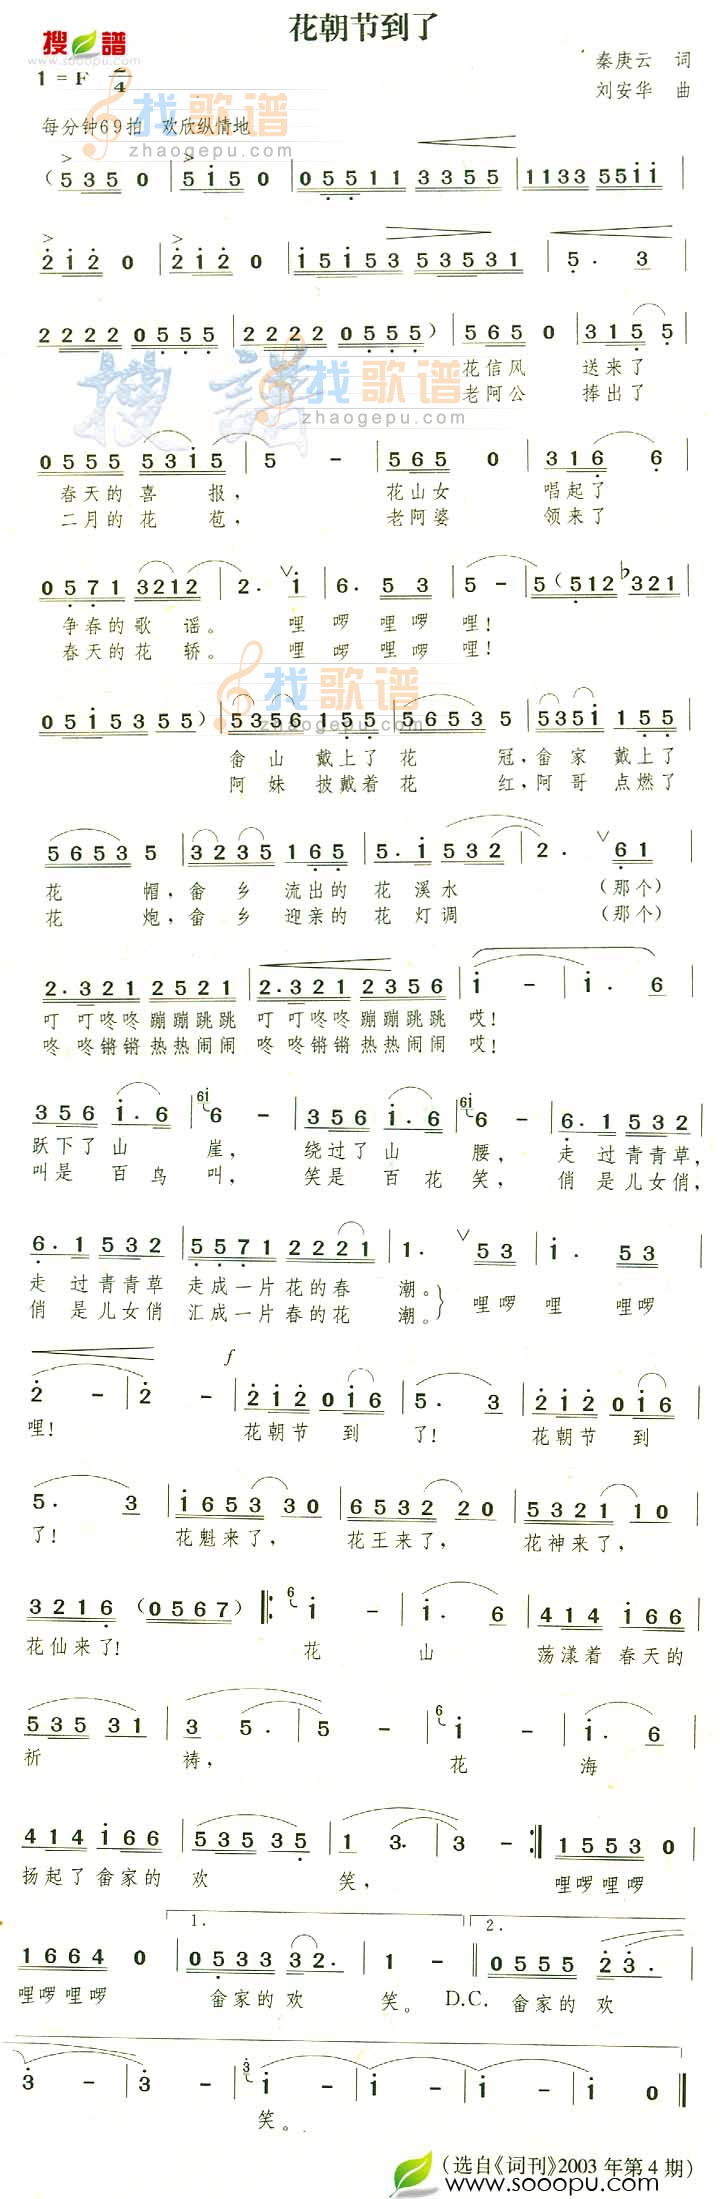 花朝节到了
搜谱
www.sooopu.com
秦庚云 词
1 = F 2/4
刘安华 曲
找歌谱
zhaogepu.com
每分钟69拍 欢欣纵情地
( 5 3 5 0 | 5 i 5 0 | 0 5 5 1 1 3 3 5 5 | 1 1 3 3 5 5 i i |
2 i 2 0 | 2 i 2 0 | i 5 i 5 3 5 3 5 3 1 | 5 . 3 |
2 2 2 2 0 5 5 5 | 2 2 2 2 0 5 5 5 ) | 5 6 5 0 | 3 1 5 5 |
花信风 送来了
老阿公 捧出了
搜谱
找歌谱
zhaogepu.com
0 5 5 5 5 3 i 5 | 5 - | 5 6 5 0 | 3 1 6 6 |
春天的喜报, 花山女 唱起了
二月的花苞, 老阿婆 领来了
0 5 7 1 3 2 1 2 | 2 . i | 6 . 5 3 | 5 - | 5 ( 5 1 2 ♭3 2 1 |
争春的歌谣。 哩啰哩啰哩!
春天的花轿。 哩啰哩啰哩!
找歌谱
zhaogepu.com
0 5 i 5 3 5 5 ) | 5 3 5 6 1 5 5 | 5 6 5 3 5 | 5 3 5 i 1 5 5 |
畲山戴上了花冠,畲家戴上了
阿妹披戴着花红,阿哥点燃了
5 6 5 3 5 | 3 2 3 5 1 6 5 | 5 . i 5 3 2 | 2 . 6 1 |
花帽,畲乡流出的花溪水 (那个)
花炮,畲乡迎亲的花灯调 (那个)
2 . 3 2 1 2 5 2 1 | 2 . 3 2 1 2 3 5 6 | i - | i . 6 |
叮叮咚咚蹦蹦跳跳 叮叮咚咚蹦蹦跳跳 哎!
咚咚锵锵热热闹闹 咚咚锵锵热热闹闹 哎!
3 5 6 i . 6 | 6i 6 - | 3 5 6 i . 6 | 6i 6 - | 6 . 1 5 3 2 |
跃下了山崖, 绕过了山腰, 走过青青草,
叫是百鸟叫, 笑是百花笑, 俏是儿女俏,
6 . 1 5 3 2 | 5 5 7 1 2 2 2 1 | 1 . 5 3 | i . 5 3 |
走过青青草 走成一片花的春潮。 哩啰哩 哩啰
俏是儿女俏 汇成一片春的花潮。
f
2 - | 2 - | 2 i 2 0 i 6 | 5 . 3 | 2 i 2 0 i 6 |
哩! 花朝节到了! 花朝节到
5 . 3 | i 6 5 3 3 0 | 6 5 3 2 2 0 | 5 3 2 1 1 0 |
了! 花魁来了, 花王来了, 花神来了,
3 2 1 6 ( 0 5 6 7 ) |: 6 i - | i . 6 | 4 1 4 i 6 6 |
花仙来了! 花山荡漾着春天的
5 3 5 3 1 | 3 5 . | 5 - | 6 i - | i . 6 |
祈祷, 花海
4 1 4 i 6 6 | 5 3 5 3 5 | 1 3 . | 3 - :| 1 5 5 3 0 |
扬起了畲家的欢笑, 哩啰哩啰
1. 2.
1 6 6 4 0 | 0 5 3 3 3 2 . | 1 - || 0 5 5 5 2 3 . |
哩啰哩啰 畲家的欢笑。 D.C. 畲家的欢
3 - | 3 - | 3 i - | i - | i - | i 0 ||
笑。
(选自《词刊》2003 年第 4 期)
www.sooopu.com